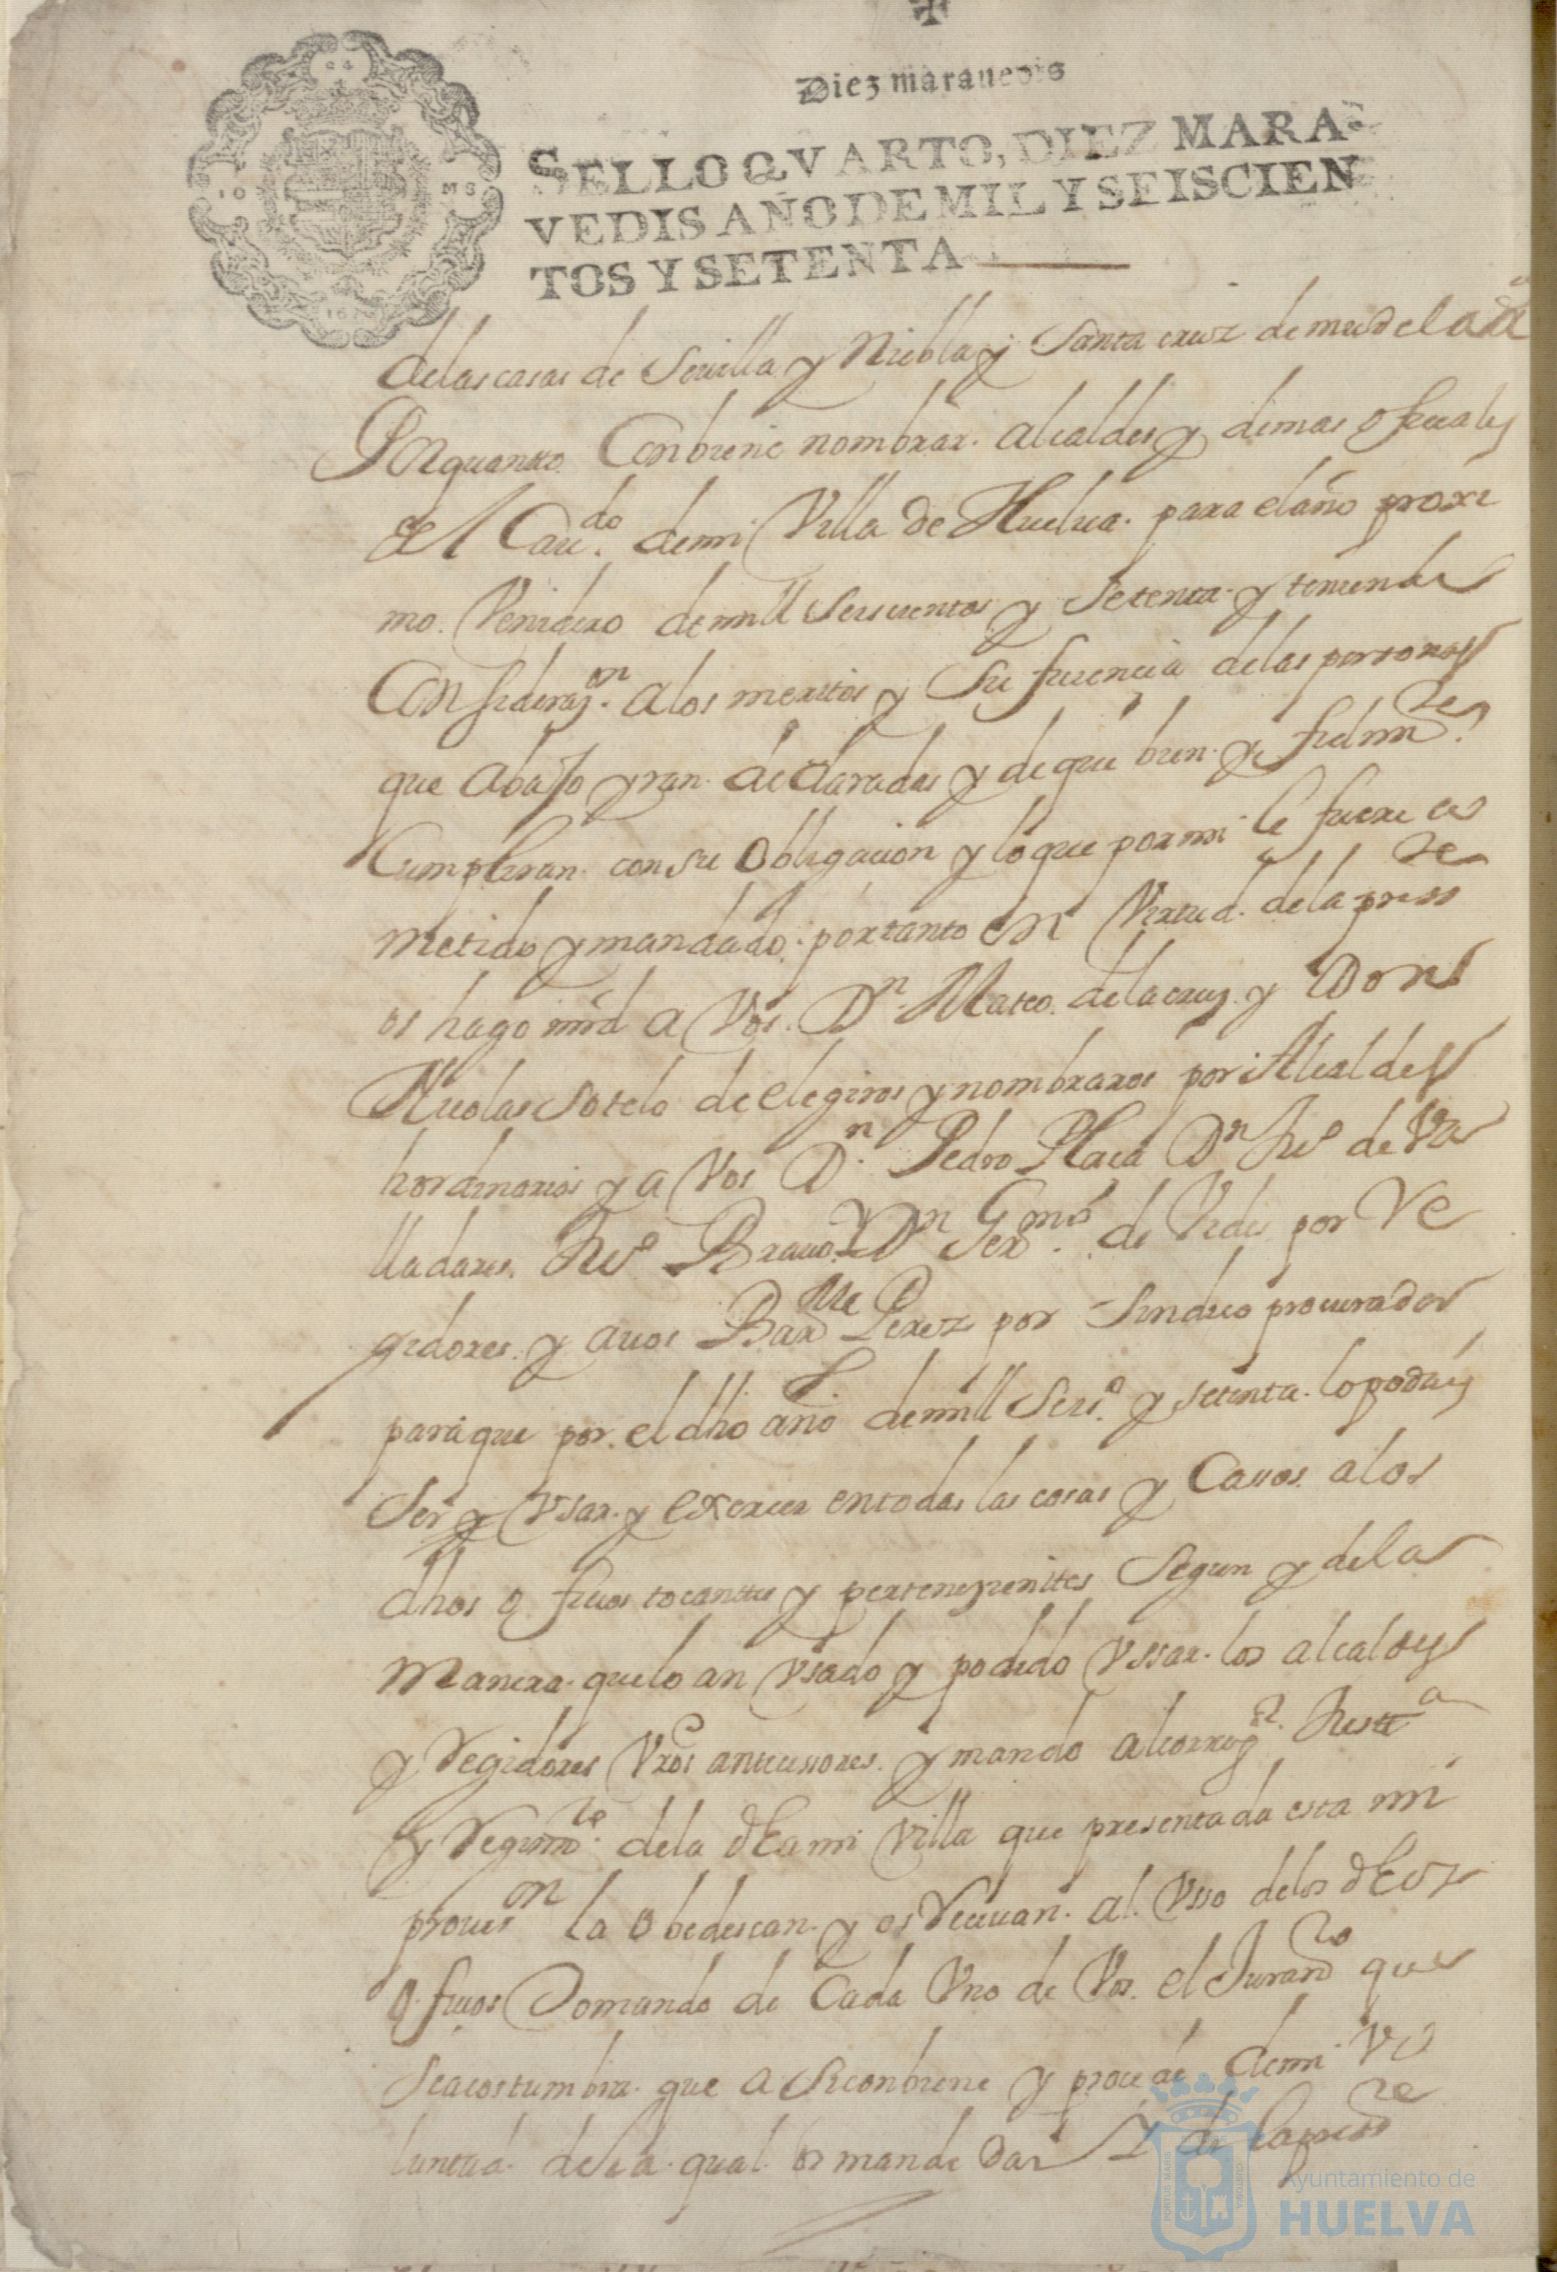 ✠
Diez maravedis
SELLO QVARTO, DIEZ MARA-
VEDIS AÑO DE MIL Y SEISCIEN
TOS Y SETENTA
delas casas de Sevilla y Niebla y Santa cruz de mudela
Por quanto Conbiene nombrar alcaldes y demas ofiçiales
del Cav.do demi Villa de Huelva para el año proxi
mo Venidero de mill seiscientos y setenta y teniendo
Considerazon a los meritos y Sufiçiencia delas personas
que abajo yran declaradas y de que bien y fielmte
Cumpliran con su obligaçion y lo que por mi le fuere co
metido y mandado: por tanto en Virtud de la presste
os hago mrd a Vos Dn Mateo de la cruz y Don
Nicolas Sotelo de elegiros y nombraros por Alcaldes
hordinarios y a Vos Dn Pedro Plaça Dn de Va
lladares Bravo Y Dn Germo de por Re
gidores y a vos Barme Perez por Sindico procurador
para que por el dho año de mill Seiso y setenta lo podais
Ser y Vsar y exercer en todas las cosas y Cassos a los
dhos ofiçios tocanttes y perteneçientes Segun y de la
Manera que lo an Vsado y podido Vssar los alcaldes
y Regidores Vros antecessores y mando al corregr Justta
y Regimto de la dha mi Villa que presentada esta mi
provison la obedescan y os Recivan al Vsso de los dhos
ofiçios Tomando de Cada Vno de Vos el Juramto que
se acostumbra que a Si conbiene y proçede de mi Vo
luntad de la qual os mande dar Y di la presste
PORTUS MARIS
CUSTODIA
Ayuntamiento de
HUELVA